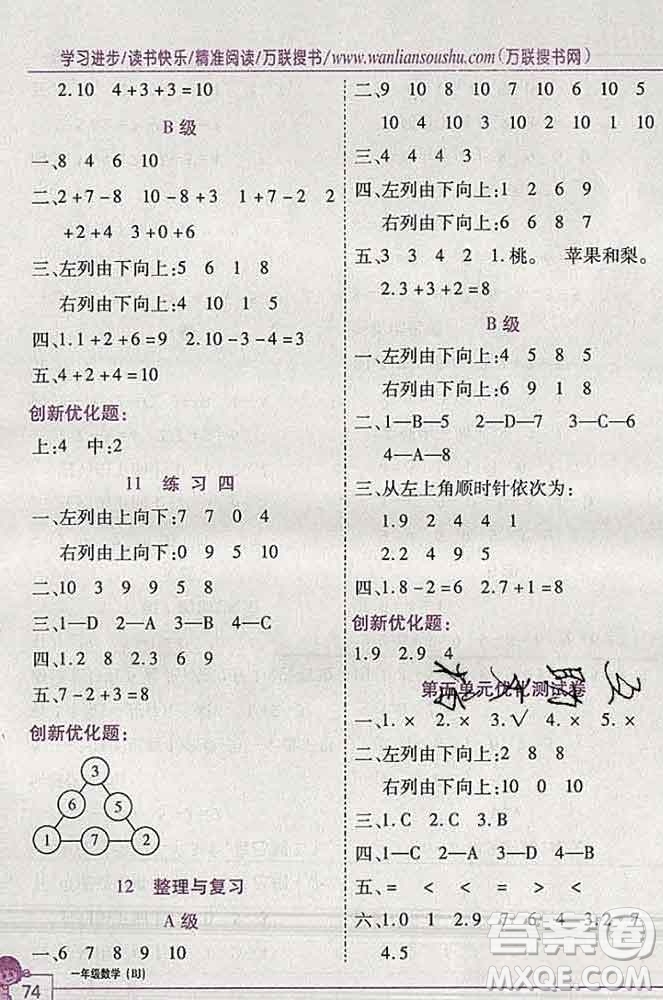 学习进步/读书快乐/精准阅读/万联搜书/www.wanliansoushu.com(万联搜书网)
2.10 4+3+3=10
B 级
一、8 4 6 10
二、2+7-8 10-6+3 1+7-2 2
+2+4 7-4-3
三、左列由下向上:5 6 1 8
右列由下向上:4 10 1 5
四、1.1+2+6=9 2.10-4-3=3
五、4+2+4=10
创新优化题:
上:4 中:2
11 练 习 四
一、左列由上向下:7 7 0 4
右列由上向下:9 0 2 7
二、10 3 9 9 5 8
三、1—D 2—A 3—C 4—B
四、1.2 8 2.9 4
五、7-2+3=8
创新优化题:
3
6 5
1 7 2
12 整理与复习
A 级
一、6 7 8 9 10
一年级数学(BJ)
74
二、9 10 8 10 7 10 6 10 5
10 4 10 3 10 2 10 1 10
三、4 4 4 3
四、左列由下向上:1 2 6 9
右列由下向上:6 6 8 7
五、3 3 4 2 1.桃。 苹果和梨。
2.3+3+2=8
B 级
一、左列由下向上:4 5 8 5
右列由下向上:4 5 8 5
二、1—B—5 2—D—7 3—C—6
4—A—8
三、从左上角顺时针依次为:
1.9 2 4 4 1
2.2 4 9 5
四、1.8-2=6 2.7+1=8
创新优化题:
1.9 2.9 4
第五单元优化测试卷
一、1.× 2.× 3.√ 4.× 5.×
二、左列由下向上:2 8 8
右列由下向上:10 0 10
三、1.C 2.C 3.B
四、1—C 2—A 3—D 4—B
五、= < < = > <
六、1.0 1 2.9 7 6 3.2 7
4.5
答案圈
MXQE.COM